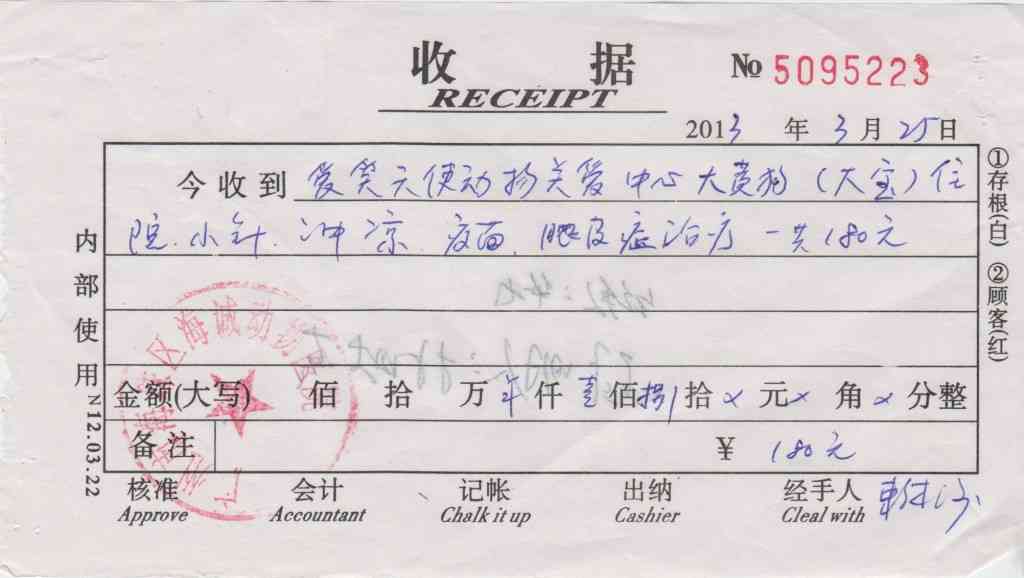 收 据
RECEIPT
№ 5095223
2013 年 3 月 25 日
今收到 爱笑天使动物关爱中心大黄狗（大宝）住
院.小针.冲凉.疫苗.眼皮症治疗 一共180元
金额(大写) 佰 拾 万 仟 壹 佰 捌 拾 × 元 × 角 × 分整
备注 ¥ 180元
核准 会计 记帐 出纳 经手人
Approve Accountant Chalk it up Cashier Cleal with
内部使用
N12.03.22
①存根(白) ②顾客(红)
区海诚动物医院